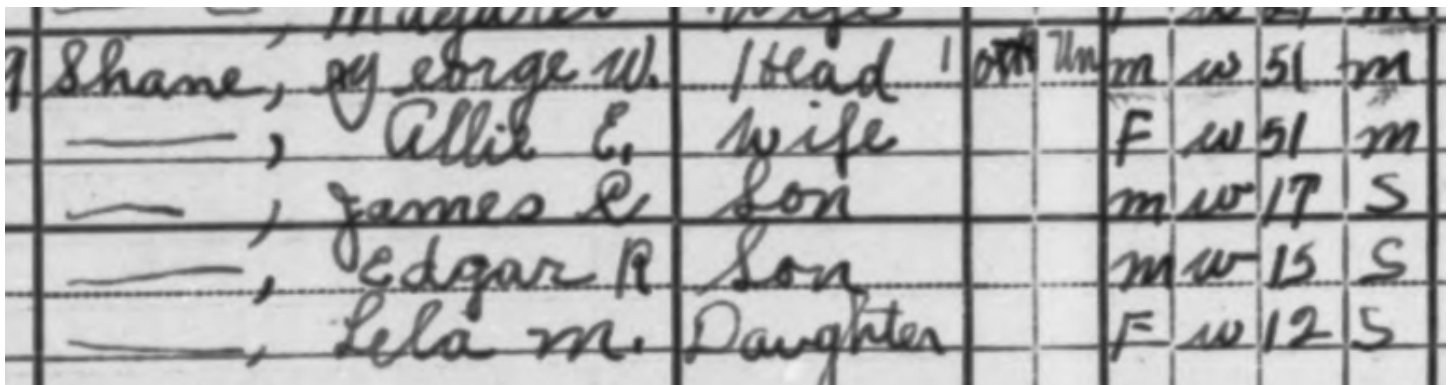 Wife
Shane, George W. Head 1 Un m w 51 m
—, Allie E. Wife F w 51 m
—, James R Son m w 17 S
—, Edgar R Son m w 15 S
—, Lela M. Daughter F w 12 S